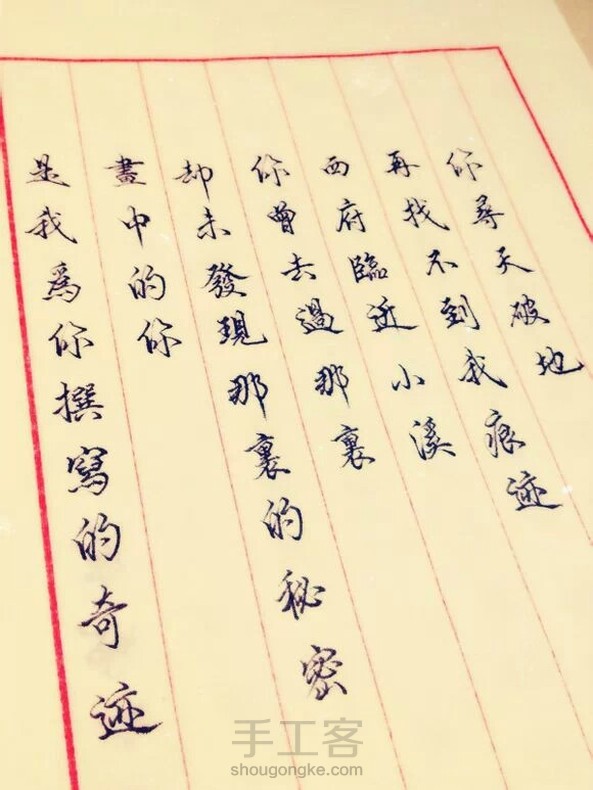 你尋天破地
再找不到我痕迹
西府臨近小溪
你曾去過那裏
却未發現那裏的秘密
畫中的你
是我為你撰寫的奇迹
手工客
shougongke.com